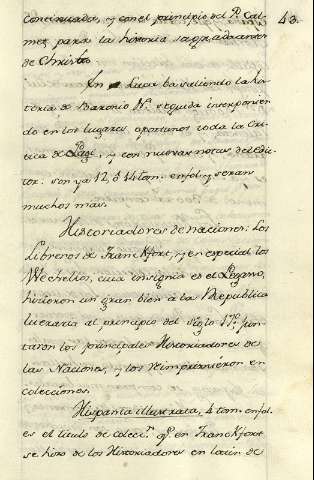 43.
continuada, y con el principio del P. Cal-
met para la historia sagrada antes
de Christo.
En Luca ha salido la his-
toria de Baronio N.ª seguida interponien-
do en los lugares oportunos toda la Cri-
tica de Pagi, y con nuevas notas del Edic-
tor. son ya 12, ó 14 tom. en fol. y seran
muchos mas.
Historiadores de naciones: Los
Libreros de Franckfort, y en especial los
Wechelios, cuia insignia es el Pegaso,
hicieron un gran bien à la Republica
literaria al principio del siglo 17.º jun-
taron los principales Historiadores de
las Naciones, y los reimprimieron en
colecciones.
Hispania illustrata, 4 tom. en fol.
es el titulo de colecc.n q.e en Franckfort
se hizo de los Historiadores en latin de